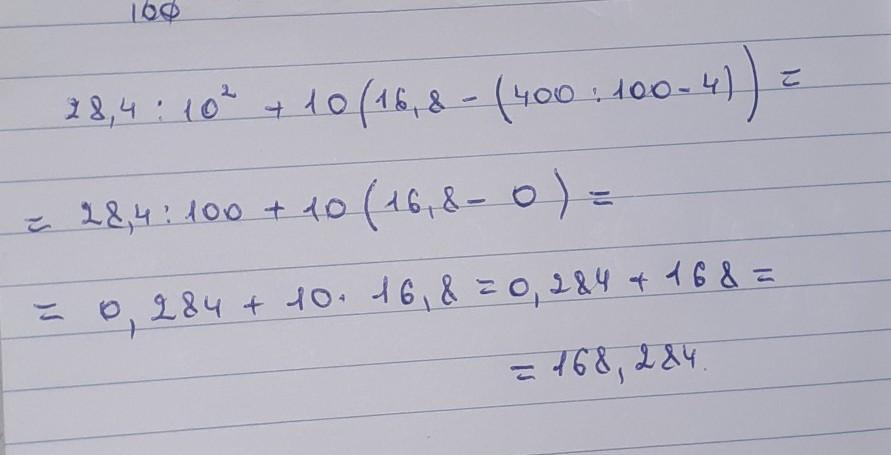 100
28,4 : 10² + 10(16,8 - (400 : 100 - 4)) =
= 28,4 : 100 + 10(16,8 - 0) =
= 0,284 + 10 · 16,8 = 0,284 + 168 =
= 168,284.